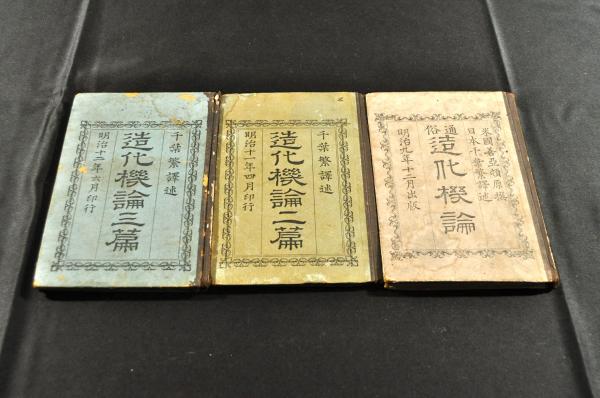 米國善亞頓原撰
日本千葉繁譯述
通俗
造化機論
明治九年十二月出版
千葉繁譯述
造化機論二篇
明治十一年四月印行
千葉繁譯述
造化機論三篇
明治十二年六月印行